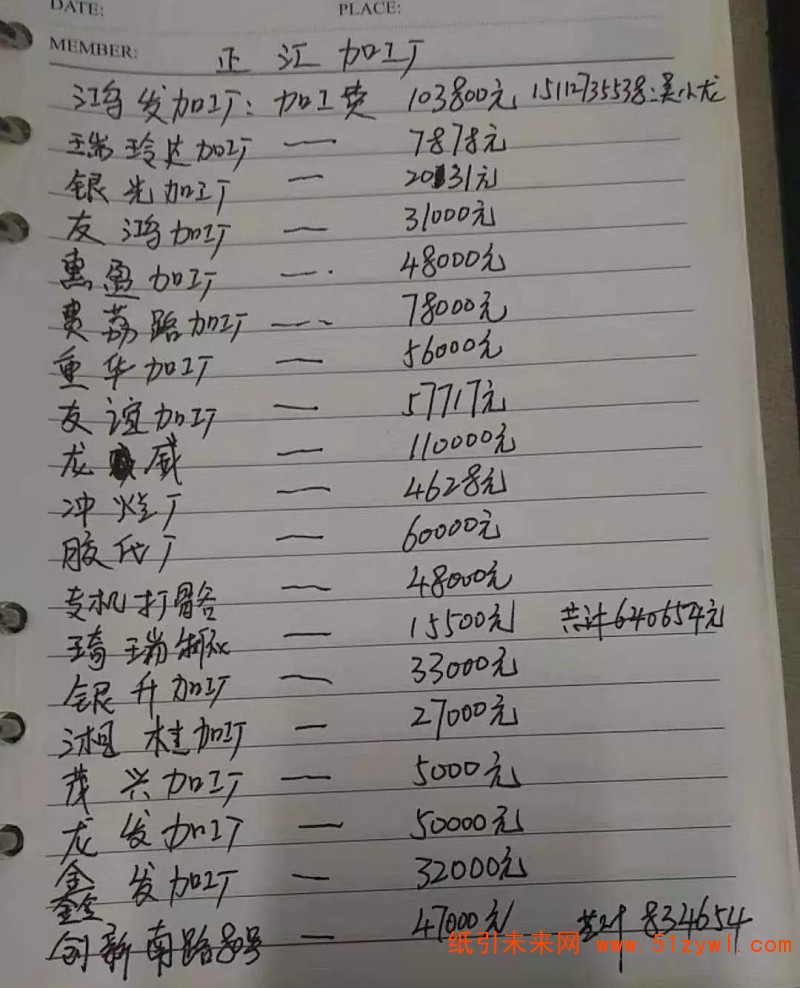 DATE: PLACE:
MEMBER: 正江加工厂
鸿发加工厂: 加工费 103800元 15112735538:吴小龙
瑞玲达加工厂 — 7878元
银光加工厂 — 20131元
友鸿加工厂 — 31000元
惠盈加工厂 — 48000元
费荔路加工厂 — 78000元
重华加工厂 — 56000元
友谊加工厂 — 57717元
龙威 — 110000元
冲烧厂 — 4628元
胶代厂 — 60000元
专机打骨各 — 48000元
琦瑞制衣 — 15500元 共计640654元
银升加工厂 — 33000元
湘桂加工厂 — 27000元
茂兴加工厂 — 5000元
龙发加工厂 — 50000元
鑫发加工厂 — 32000元
创新南路80号 47000元 共计 834654
纸引未来网 www.51zywl.com